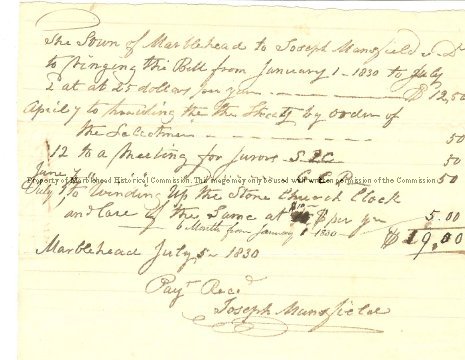 The Town of Marblehead to Joseph Mansfield Dr
to Ringing the Bell from January 1 - 1830 to July
1 at 25 dollars per year $ 12,50
April 7 to the by order of
the Selectmen 50
12 to a Meeting for Jurors 50
June 50
Property of Marblehead Historical Commission. This image may only be used with written permission of the Commission
July 1 to Winding Up the Stone Church Clock
and Care of the Same at $ per yr 5.00
6 Month from January 1 1830
$ 19.00
Marblehead July 5 - 1830
Payt Recd
Joseph Mansfield